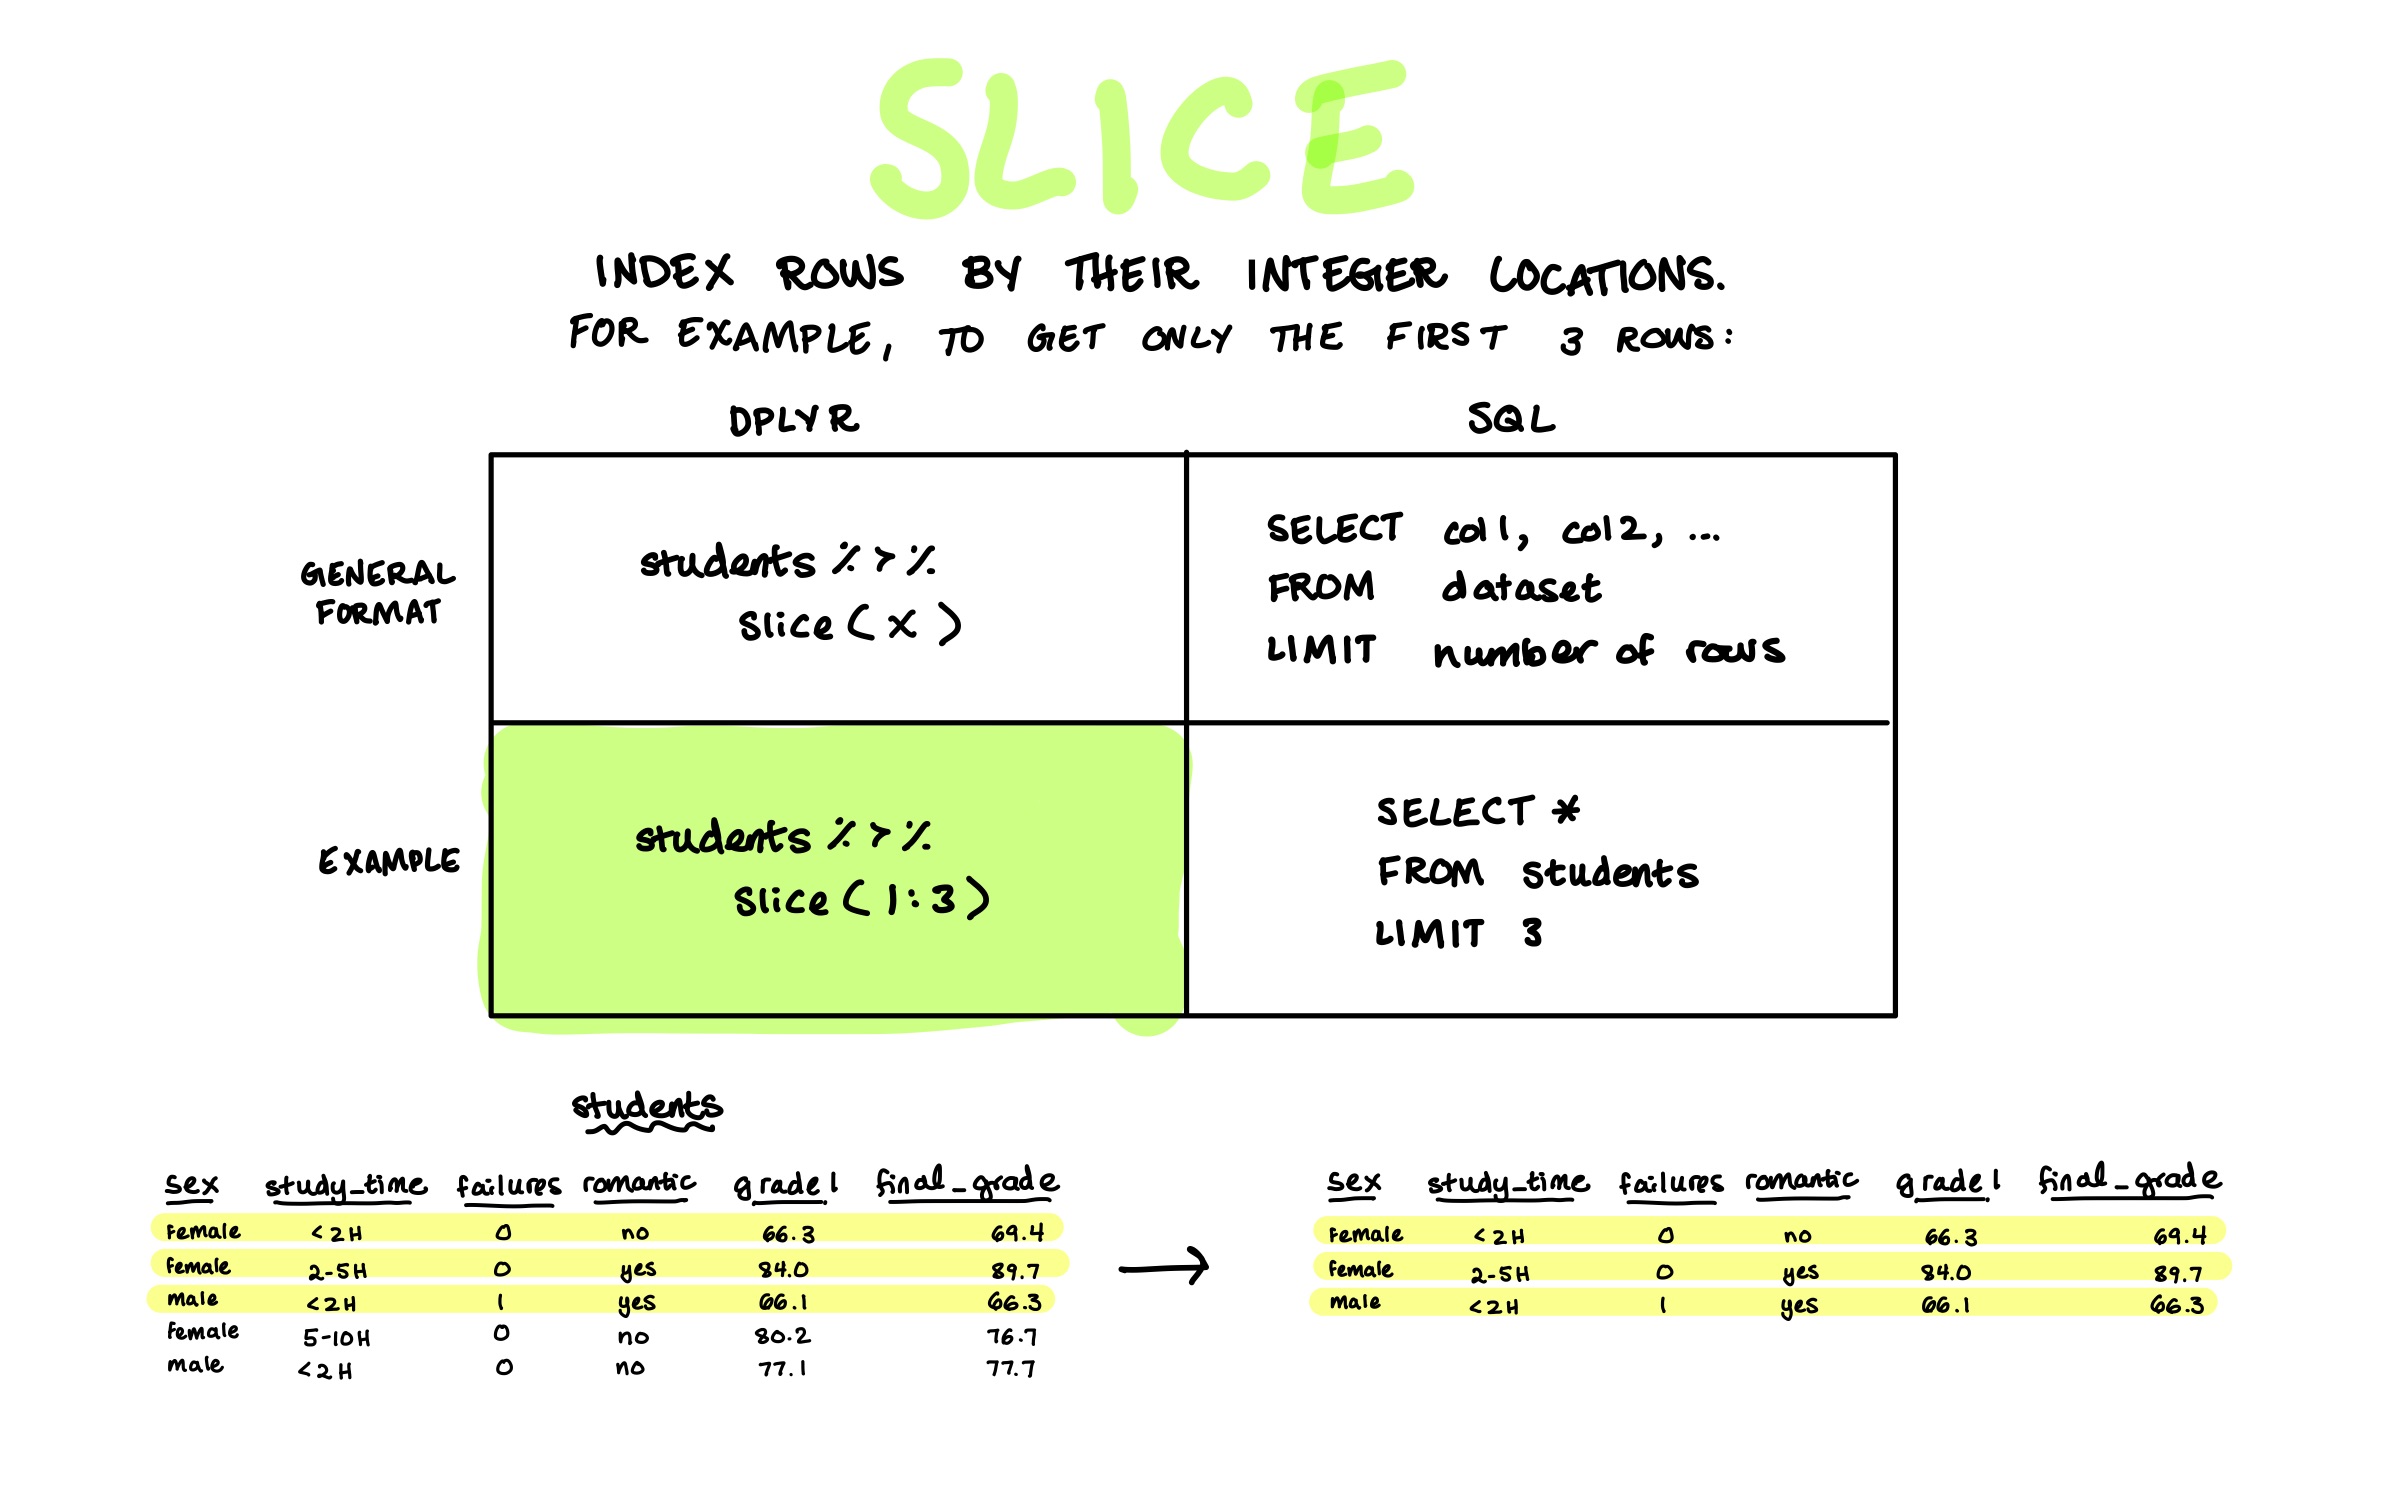 SLICE
INDEX ROWS BY THEIR INTEGER LOCATIONS.
FOR EXAMPLE, TO GET ONLY THE FIRST 3 ROWS:
DPLYR SQL
GENERAL
FORMAT
students %>%
slice (x)
SELECT col1, col2, ...
FROM dataset
LIMIT number of rows
EXAMPLE
students %>%
slice (1:3)
SELECT *
FROM students
LIMIT 3
students
sex study_time failures romantic grade1 final_grade
Female <2H 0 no 66.3 69.4
Female 2-5H 0 yes 84.0 89.7
male <2H 1 yes 66.1 66.3
Female 5-10H 0 no 80.2 76.7
male <2H 0 no 77.1 77.7
sex study_time failures romantic grade1 final_grade
Female <2H 0 no 66.3 69.4
Female 2-5H 0 yes 84.0 89.7
male <2H 1 yes 66.1 66.3